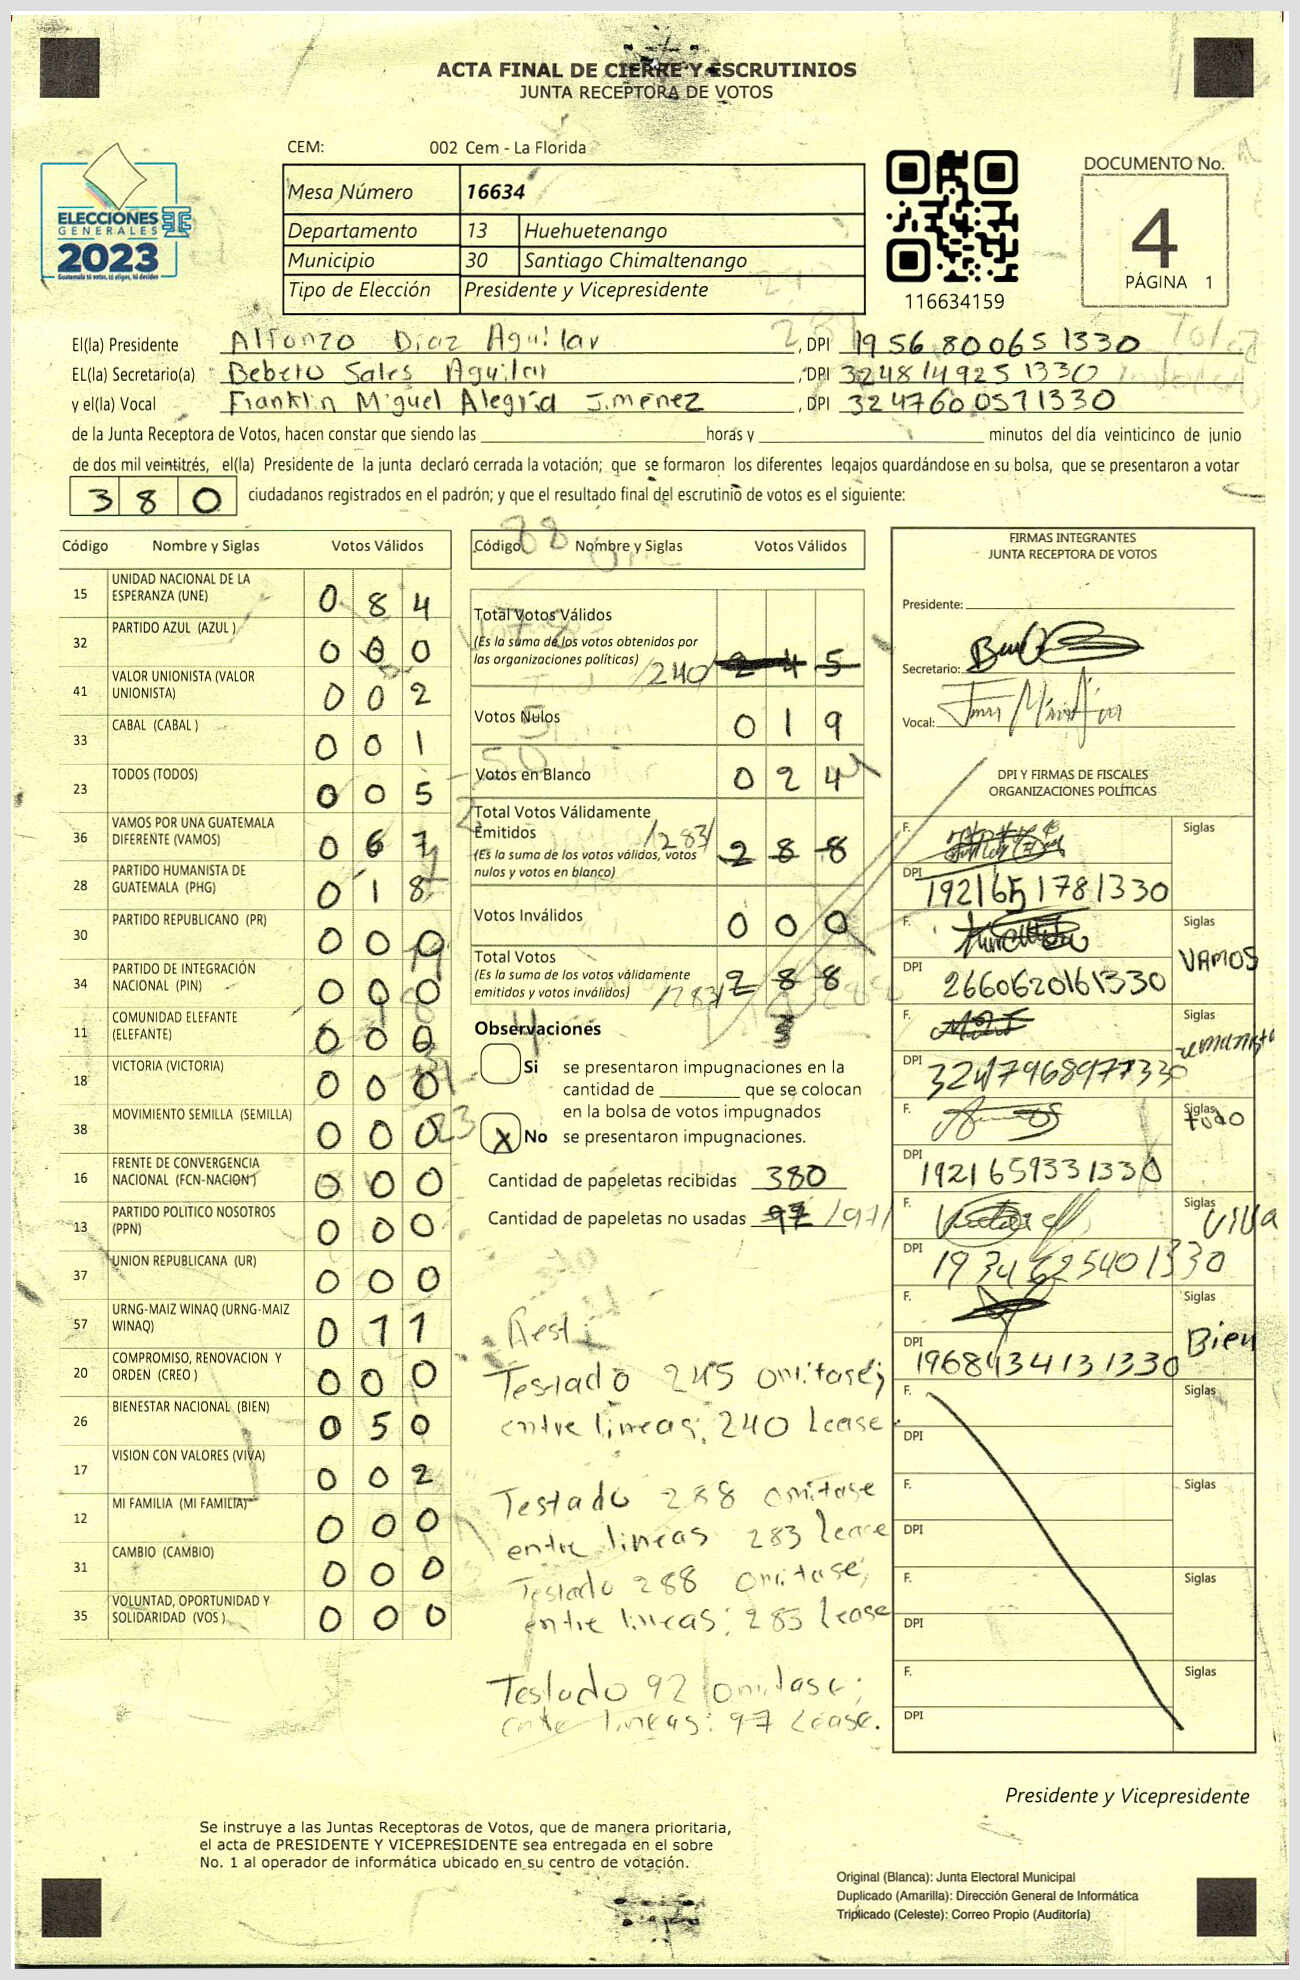 ACTA FINAL DE CIERRE Y ESCRUTINIOS
JUNTA RECEPTORA DE VOTOS
CEM: 002 Cem - La Florida
Mesa Número 16634
Departamento 13 Huehuetenango
Municipio 30 Santiago Chimaltenango
Tipo de Elección Presidente y Vicepresidente
ELECCIONES
GENERALES
2023
Guatemala tú votas, tú eliges, tú decides
116634159
DOCUMENTO No.
4
PÁGINA 1
El(la) Presidente Alfonzo Diaz Aguilar, DPI 1956800651330
EL(la) Secretario(a) Bebeto Sales Aguilar, DPI 3248149251330
y el(la) Vocal Franklin Miguel Alegria Jimenez, DPI 3247600571330
de la Junta Receptora de Votos, hacen constar que siendo las horas y minutos del día veinticinco de junio
de dos mil veintitrés, el(la) Presidente de la junta declaró cerrada la votación; que se formaron los diferentes legajos guardándose en su bolsa, que se presentaron a votar
380 ciudadanos registrados en el padrón; y que el resultado final del escrutinio de votos es el siguiente:
Código Nombre y Siglas Votos Válidos
15 UNIDAD NACIONAL DE LA ESPERANZA (UNE) 0 8 4
32 PARTIDO AZUL (AZUL ) 0 0 0
41 VALOR UNIONISTA (VALOR UNIONISTA) 0 0 2
33 CABAL (CABAL ) 0 0 1
23 TODOS (TODOS) 0 0 5
36 VAMOS POR UNA GUATEMALA DIFERENTE (VAMOS) 0 6 7
28 PARTIDO HUMANISTA DE GUATEMALA (PHG) 0 1 8
30 PARTIDO REPUBLICANO (PR) 0 0 0
34 PARTIDO DE INTEGRACIÓN NACIONAL (PIN) 0 0 0
11 COMUNIDAD ELEFANTE (ELEFANTE) 0 0 0
18 VICTORIA (VICTORIA) 0 0 0
38 MOVIMIENTO SEMILLA (SEMILLA) 0 0 0
16 FRENTE DE CONVERGENCIA NACIONAL (FCN-NACION ) 0 0 0
13 PARTIDO POLITICO NOSOTROS (PPN) 0 0 0
37 UNION REPUBLICANA (UR) 0 0 0
57 URNG-MAIZ WINAQ (URNG-MAIZ WINAQ) 0 1 1
20 COMPROMISO, RENOVACION Y ORDEN (CREO ) 0 0 0
26 BIENESTAR NACIONAL (BIEN) 0 5 0
17 VISION CON VALORES (VIVA) 0 0 2
12 MI FAMILIA (MI FAMILIA) 0 0 0
31 CAMBIO (CAMBIO) 0 0 0
35 VOLUNTAD, OPORTUNIDAD Y SOLIDARIDAD (VOS ) 0 0 0
Código Nombre y Siglas Votos Válidos
Total Votos Válidos
(Es la suma de los votos obtenidos por
las organizaciones políticas) /240/ 2 4 5
Votos Nulos 0 1 9
Votos en Blanco 0 2 4
Total Votos Válidamente
Emitidos /283/ 2 8 8
(Es la suma de los votos válidos, votos
nulos y votos en blanco)
Votos Inválidos 0 0 0
Total Votos
(Es la suma de los votos válidamente
emitidos y votos inválidos) /283/ 2 8 8
Observaciones
Si se presentaron impugnaciones en la
cantidad de que se colocan
en la bolsa de votos impugnados
X No se presentaron impugnaciones.
Cantidad de papeletas recibidas 380
Cantidad de papeletas no usadas 92 /97/
Testado 245 omitase;
entre lineas; 240 Lease
Testado 288 omitase
entre lineas 283 lease
Testado 288 omitase;
entre lineas: 283 lease
Testado 92 omitase;
entre lineas: 97 Lease.
FIRMAS INTEGRANTES
JUNTA RECEPTORA DE VOTOS
Presidente:
Secretario:
Vocal:
DPI Y FIRMAS DE FISCALES
ORGANIZACIONES POLÍTICAS
F. Siglas
DPI 1921651781330
F. Siglas VAMOS
DPI 2660620161330
F. Siglas
DPI 3247968971330
F. Siglas todo
DPI 1921659331330
F. Siglas Viva
DPI 1934625401330
F. Siglas Bien
DPI 1968434131330
F. Siglas
DPI
F. Siglas
DPI
F. Siglas
DPI
F. Siglas
DPI
Presidente y Vicepresidente
Se instruye a las Juntas Receptoras de Votos, que de manera prioritaria,
el acta de PRESIDENTE Y VICEPRESIDENTE sea entregada en el sobre
No. 1 al operador de informática ubicado en su centro de votación.
Original (Blanca): Junta Electoral Municipal
Duplicado (Amarilla): Dirección General de Informática
Triplicado (Celeste): Correo Propio (Auditoría)